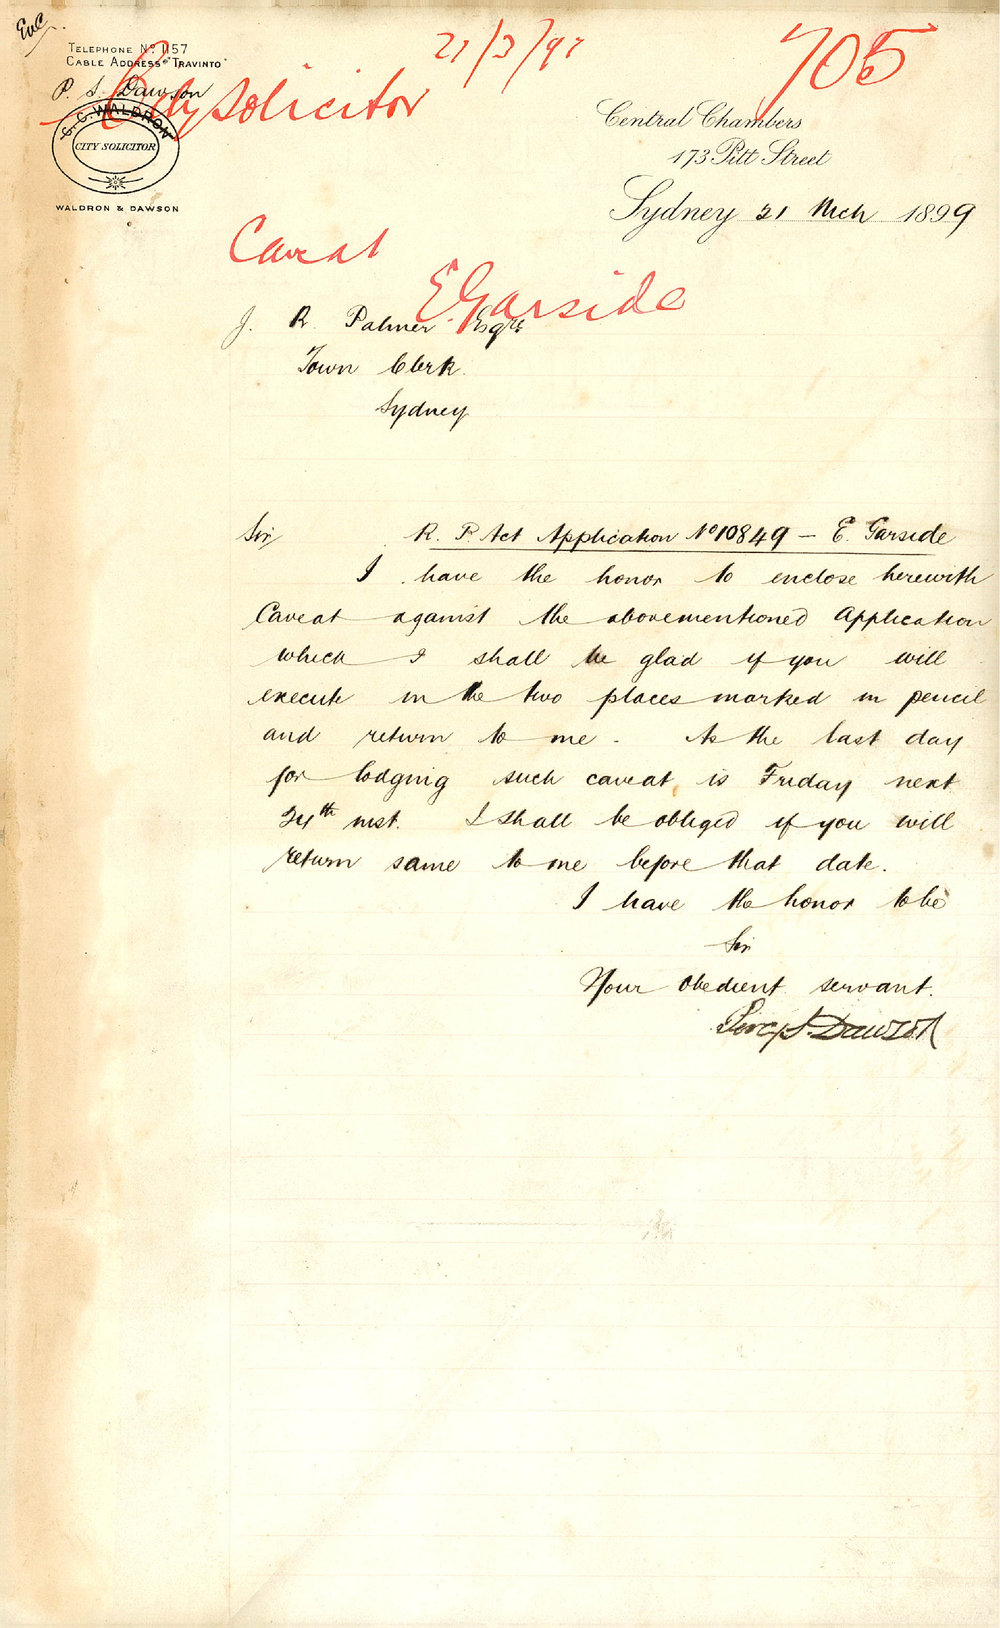 Enc
21/3/97
705
TELEPHONE No 1157
CABLE ADDRESS "TRAVINTO"
P. S. Dawson
City Solicitor
C. C. WALDRON
CITY SOLICITOR
WALDRON & DAWSON
Central Chambers
173 Pitt Street
Sydney 21 Mch 1899
Caveat
E Garside
J. R. Palmer Esqre
Town Clerk.
Sydney
Sir R. P. Act Application No 10849 – E. Garside
I have the honor to enclose herewith
Caveat against the abovementioned Application
which I shall be glad if you will
execute in the two places marked in pencil
and return to me. As the last day
for lodging such caveat is Friday next
24th inst. I shall be obliged if you will
return same to me before that date.
I have the honor to be
Sir
Your obedient servant.
Percy S. Dawson